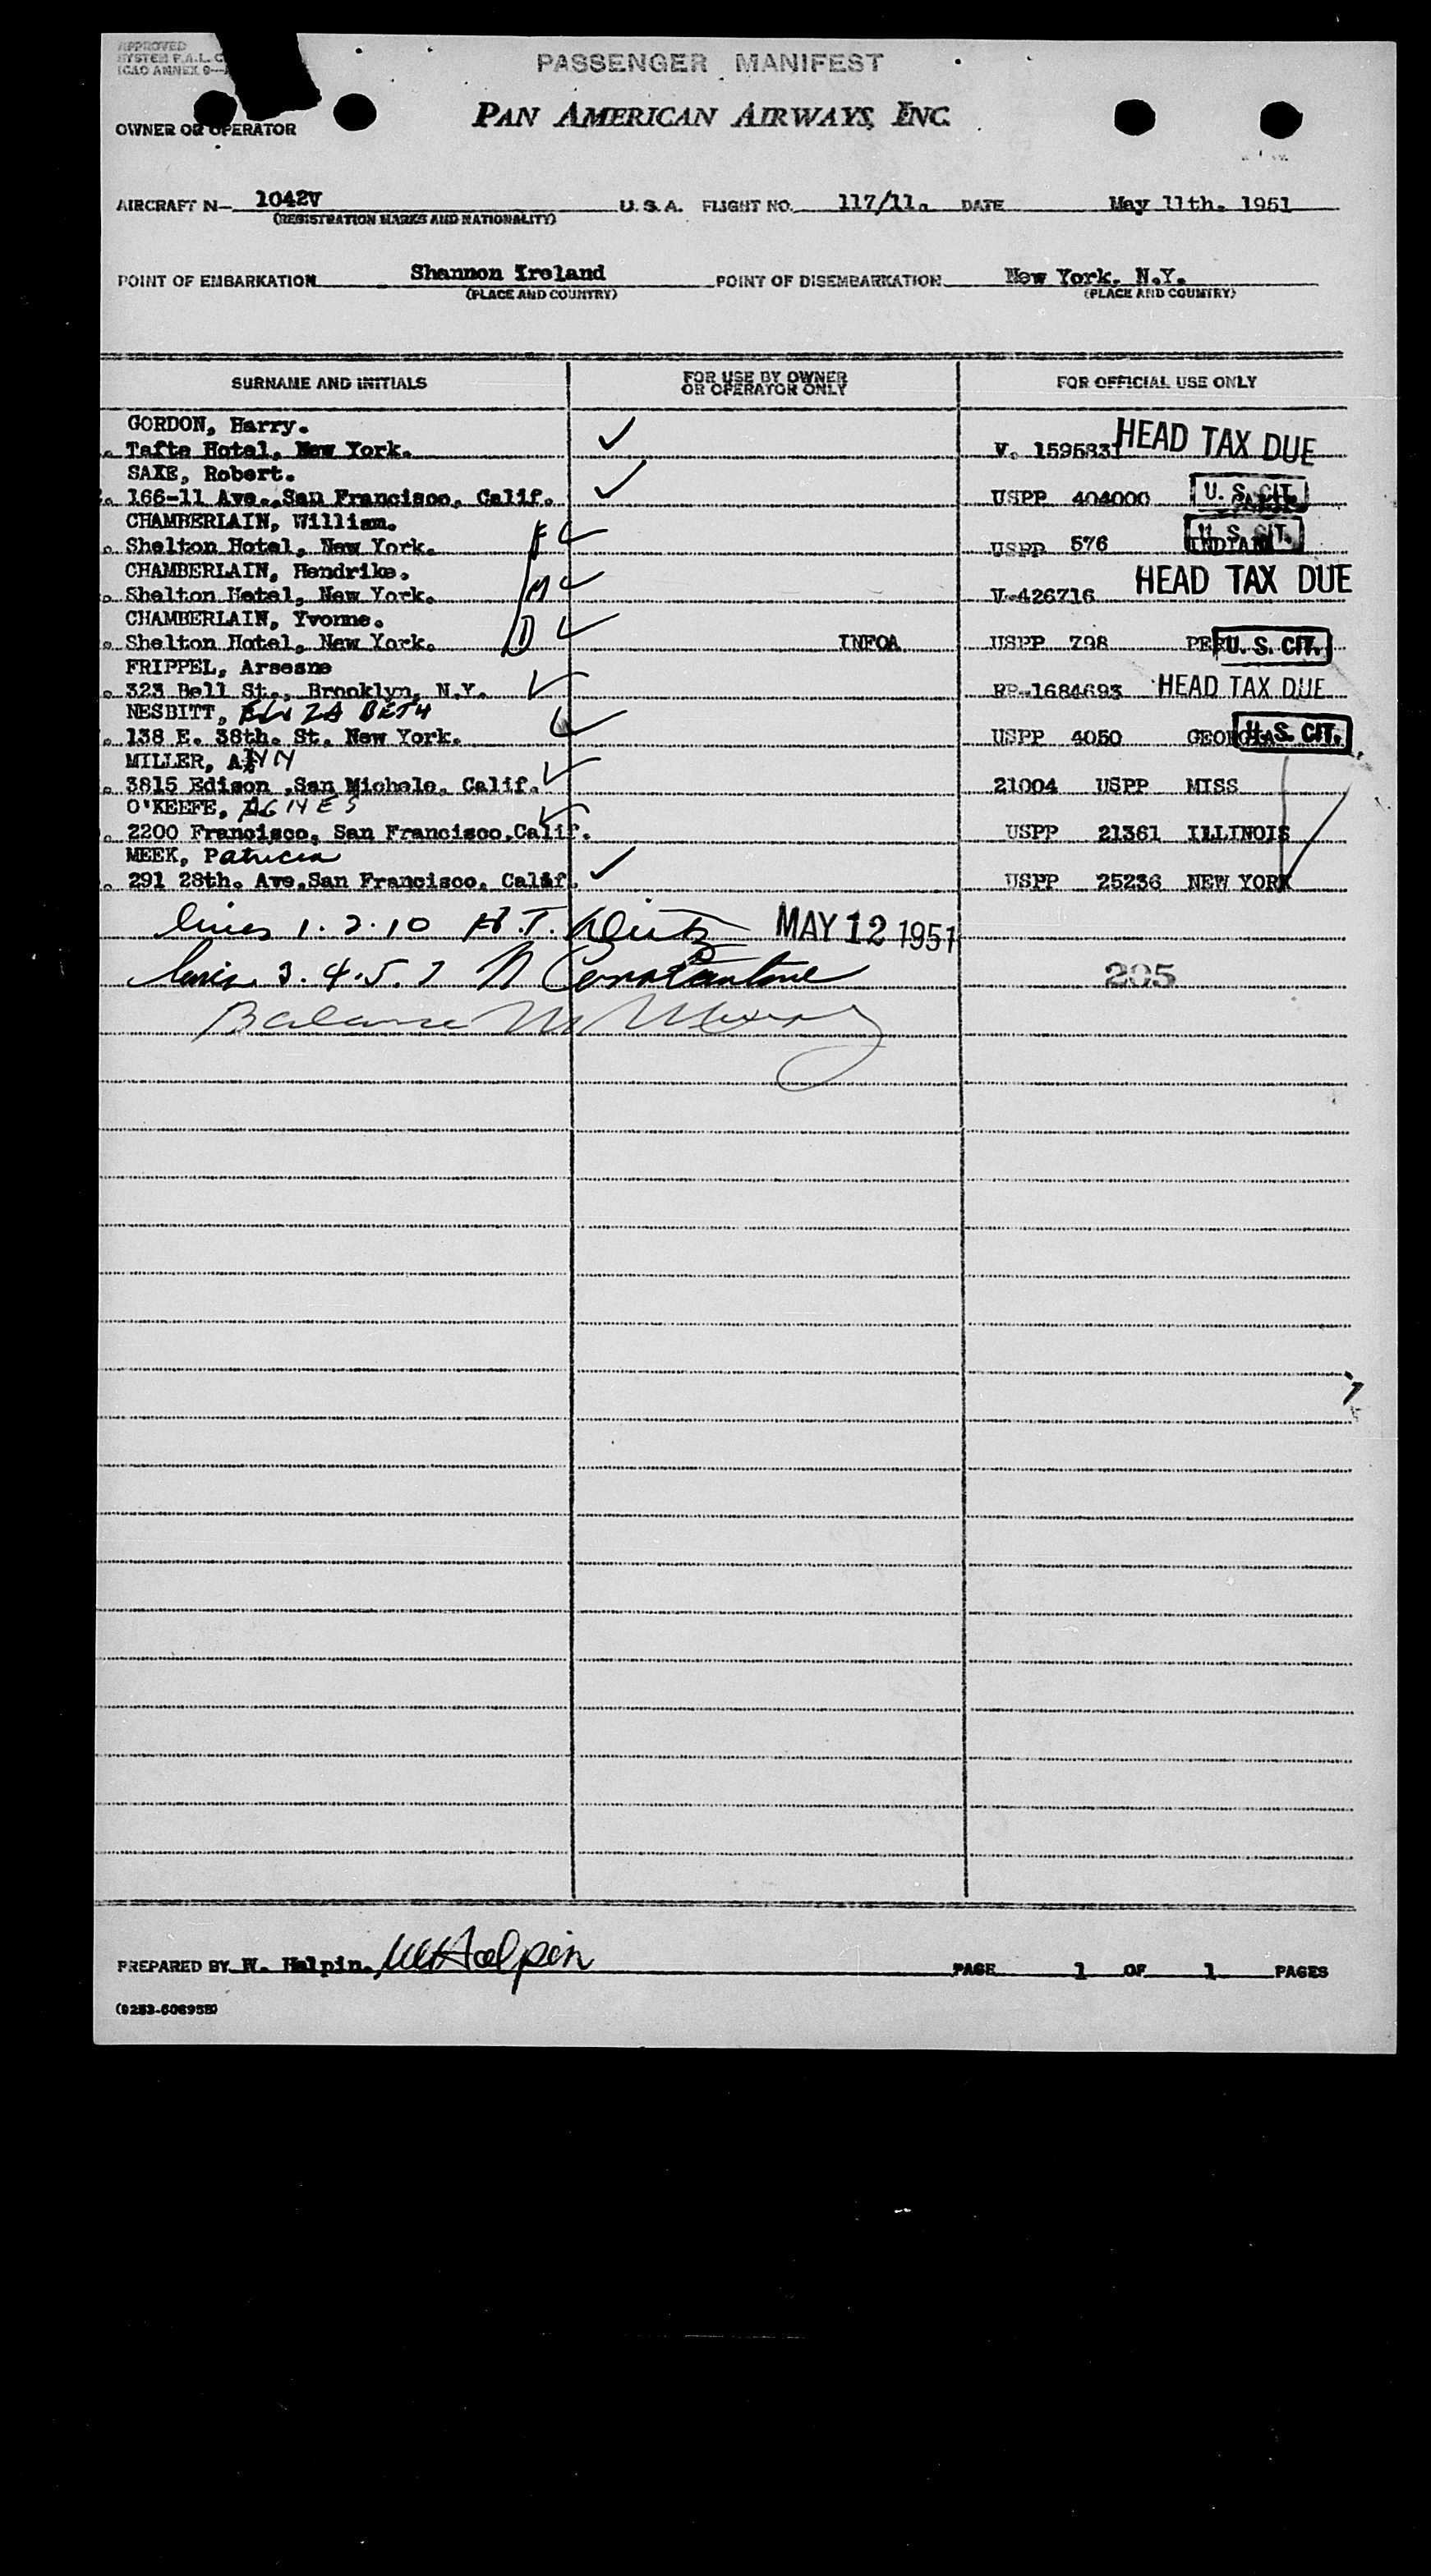 APPROVED
SYSTEM P.A.L.
ICAO ANNEX 9
PASSENGER MANIFEST
OWNER OR OPERATOR PAN AMERICAN AIRWAYS, INC.
AIRCRAFT N— 1042V U.S.A. FLIGHT NO. 117/11. DATE May 11th. 1951
(REGISTRATION MARKS AND NATIONALITY)
POINT OF EMBARKATION Shannon Ireland POINT OF DISEMBARKATION New York. N.Y.
(PLACE AND COUNTRY) (PLACE AND COUNTRY)
SURNAME AND INITIALS FOR USE BY OWNER OR OPERATOR ONLY FOR OFFICIAL USE ONLY
GORDON, Harry.
Tafte Hotel, New York. V. 159583 HEAD TAX DUE
SAXE, Robert.
166-11 Ave.,San Francisco, Calif. USPP 404000 U. S. CIT.
CHAMBERLAIN, William.
Shelton Hotel, New York. F USPP 576 INDIANA U. S. CIT.
CHAMBERLAIN, Hendrike.
Shelton Hotel, New York. M V-426716 HEAD TAX DUE
CHAMBERLAIN, Yvonne.
Shelton Hotel, New York. D INFOA USPP 798 U. S. CIT.
FRIPPEL, Arsesne
323 Bell St., Brooklyn, N.Y. RP-1684693 HEAD TAX DUE
NESBITT, ELIZABETH
138 E. 38th. St. New York. USPP 4050 GEORGIA U. S. CIT.
MILLER, ANN
3815 Edison ,San Michele, Calif. 21004 USPP MISS
O'KEEFE, AGNES
2200 Francisco, San Francisco,Calif. USPP 21361 ILLINOIS
MEEK, Patricia
291 28th. Ave,San Francisco, Calif. USPP 25236 NEW YORK
lines 1. 2. 10 H. T. MAY 12 1951
lines 3. 4. 5. 7 N Constantine 205
Balance M
PREPARED BY W. Halpin. W Halpin PAGE 1 OF 1 PAGES